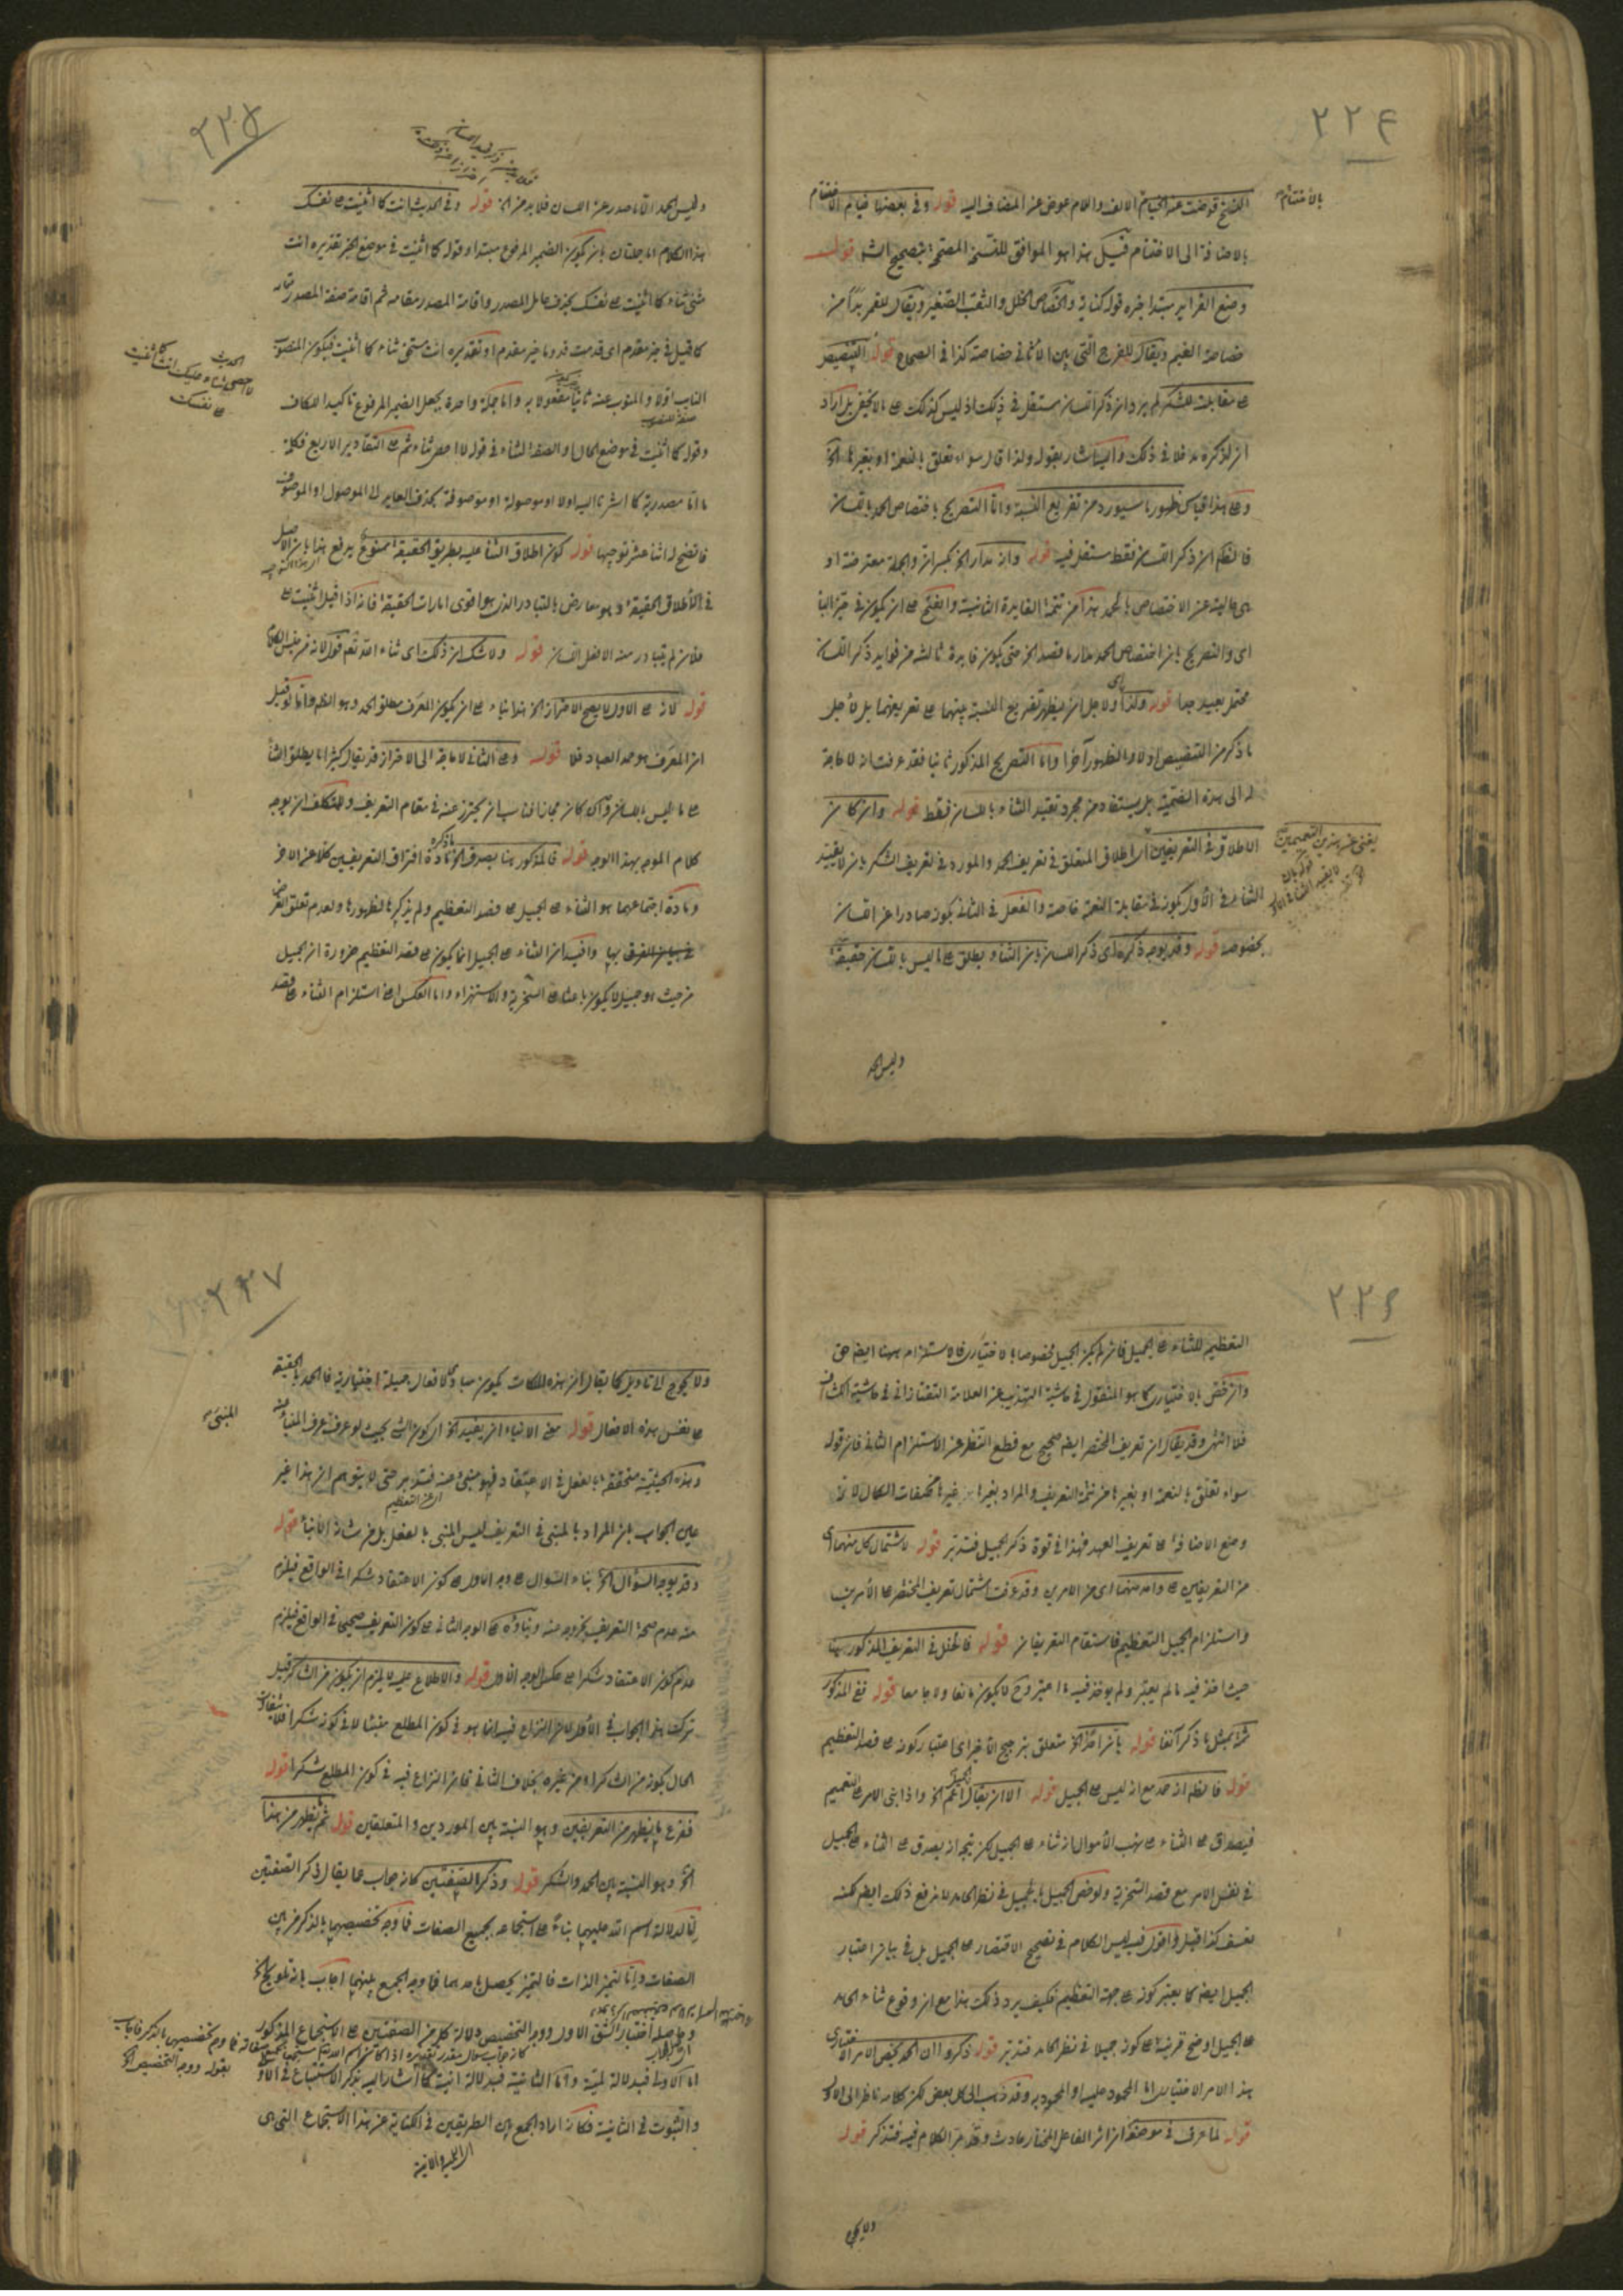 ٢٢٤
بالاختتام
النسخ قوضت عنه الخيام الالف واللام عوض عن المضاف اليه قوله وفى بعضها خيام الاختتام
بالاضافة الى الاختتام قيل هذا هو الموافق للنسخة المصححة بتصحيح الش قوله
وضع الفراير مبتدا خبره قوله كناية والخصاص الخلل والثقب الصغير ويقال للقمر بدا من
خصاصة الغيم ويقال للفرج التى بين الاثافى خصاصة كذا فى الصحاح قوله التنصيص
على مقابلته للشكر لم يرد ان ذكر اللسان مستقل فى ذلك اذ ليس كذلك على ما لا يخفى بل اراد
ان لذكره مدخلا فى ذلك واليه اشار بقوله ولذا قال سواء تعلق بالنعمة او بغيرها الخ
وعلى هذا قياس ظهور ما سيورده من تفريع النسبة واما التصريح باختصاص الحمد باللسان
فالظاهر ان ذكر اللسان فقط مستقل فيه قوله وان مدار الخ بكسر ان والجملة معترضة او
حالية عن الاختصاص بالحمد هذا من تتمة الفايدة الثانية والفتح على ان يكون فى حيز الباء
اى والتصريح بان اختصاص الحمد مدار ما قصد الخ حتى يكون فايدة ثالثة من فوايد ذكر اللسان
محتمل بعيد جدا قوله ولذا اى ولاجل ان يظهر تفريع النسبة بينهما على تعريفهما بل لاجل
ما ذكر من التنصيص اولا والظهور آخرا واما التصريح المذكور ثانيا فقد عرفت انه لا حاجة
له الى هذه الضميمة بل يستفاد من مجرد تقييد الثناء باللسان فقط قوله وان كان
الاطلاق فى التعريفين اى اطلاق المتعلق فى تعريف الحمد والمورد فى تعريف الشكر بان لا يقيد
الثناء فى الاول بكونه فى مقابلة النعمة خاصة والفعل فى الثانى بكونه صادرا عن اللسان
بخصوصه قوله وقد يوجه ذكره اى ذكر اللسان بان الثناء يطلق على ما ليس باللسان حقيقة
يغنى عن هذين التعميمين
وليس الحمد
٢٢٥
وليس الحمد الا ما صدر عن اللسان فلا بد من الخ قوله وفى الحديث انت كما اثنيت على نفسك
هذا الكلام اما جملتان بان يكون الضمير المرفوع مبتدا وقوله كما اثنيت فى موضع الخبر تقديره انت
مثنى ثناء كما اثنيت على نفسك بحذف عامل المصدر واقامة المصدر مقامه ثم اقامة صفة المصدر مقامه
كما قيل فى خير مقدم اى قدمت قدوما خير مقدم او تقديره انت مستحق ثناء كما اثنيت فيكون المنصوب
النايب اولا والمنوب عنه ثانيا مفعولا به واما جملة واحدة بجعل الضمير المرفوع تاكيدا للكاف
وقوله كما اثنيت فى موضع الحال او الصفة لثناء فى قوله لا احصى ثناء ثم على التقادير الاربع فكلمة
ما اما مصدرية كما اشرنا اليه اولا او موصولة او موصوفة بحذف العايد الى الموصول او الموصوف
فاتضح له اثنا عشر توجيها قوله كون اطلاق الثناء عليه بطريق الحقيقة ممنوع يدفع هذا بان الاصل
فى الاطلاق الحقيقة وهو معارض بالتبادر الذى هو اقوى امارات الحقيقة فانه اذا قيل اثنيت على
فلان لم يتبادر منه الا فعل اللسان قوله ولا شك ان ذلك اى ثناء الله تعالى قوله لانه من جنس الكلام
قوله لانه على الاول لا يصح الاحتراز الخ هذا بناء على ان يكون المعرف مطلق الحمد وهو الظاهر واما لو قيل
ان المعرف هو حمد العباد فلا قوله وعلى الثانى لا حاجة الى الاحتراز قد يقال كثيرا ما يطلق الثناء
على ما ليس باللسان وان كان مجازا فناسب ان يحترز عنه فى مقام التعريف وللتكلف ان يوجه
كلام الموجه بهذا الوجه قوله فالمذكور هنا يصدق الخ مادة افتراق التعريفين كلا عن الاخر
ومادة اجتماعهما هو الثناء على الجميل على قصد التعظيم ولم يذكرها لظهورها ولعدم تعلق الغرض
فى بيان الفرق بها وافيد ان الثناء على الجميل انما يكون على قصد التعظيم ضرورة ان الجميل
من حيث هو جميل لا يكون باعثا على السخرية والاستهزاء واما العكس اعنى استلزام الثناء على قصد
الحديث
لا احصى ثناء عليك انت كما اثنيت
على نفسك
٢٢٦
التعظيم للثناء على الجميل فان لم يكن الجميل مخصوصا بالاختيارى فالاستلزام ههنا ايضا حق
وان خص بالاختيارى كما هو المنقول فى حاشية التهذيب عن العلامة التفتازانى فى حاشية الكشاف
فلا انتهى وقد يقال ان تعريف المختصر ايضا صحيح مع قطع النظر عن الاستلزام الثانى فان قوله
سواء تعلق بالنعمة او بغيرها من تتمة التعريف والمراد بغيرها غيرها من صفات الكمال لانه
وضع الاضافة على تعريف العهد فهذا فى قوة ذكر الجميل فتدبر قوله لاشتمال كل منهما اى
من التعريفين على واحد منهما اى من الامرين وقد عرفت اشتمال تعريف المختصر على الامرين
واستلزام الجميل التعظيم فاستقام التعريفان قوله فالخلل فى التعريف المذكور هنا
حيث اخذ فيه ما لم يعتبر ولم يؤخذ فيه ما اعتبر وح لا يكون مانعا ولا جامعا قوله ففى المذكور
ثمة بمثل ما ذكر آنفا قوله بان اخذ الخ متعلق بترجيح الاخير اى اعتبار كونه على قصد التعظيم
قوله فالظاهر انه حمد مع انه ليس على الجميل قوله الا ان يقال الجميل اعم الخ واذا بنى الامر على التعميم
فيصدق على الثناء على نهب الاموال انه ثناء على الجميل لكن يتجه انه يصدق على الثناء على الجميل
فى نفس الامر مع قصد السخرية ولو خص الجميل بالجميل فى نظر الحامد لاندفع ذلك ايضا لكنه
تعسف كذا قيل واقول فيه ليس الكلام فى تصحيح الاقتصار على الجميل بل فى بيان اعتبار
الجميل ايضا كما يعتبر كونه على جهة التعظيم فكيف يرد ذلك هذا مع ان وقوع ثناء الحامد
على الجميل اوضح قرينة على كونه جميلا فى نظر الحامد فتدبر قوله ذكروا ان الحمد يخص الامر الاختيارى
هذا الامر الاختيارى اما المحمود عليه او المحمود به وقد ذهب الى كل بعض لكن كلامه ناظر الى الاول
قوله لما عرف فى موضعه ان اثر الفاعل المختار حادث وقد مر الكلام فيه فتذكر قوله
ولا يحوج
٢٢٧
ولا يحوج الى تاويل كما يقال ان هذه الملكات يكون مبادى لافعال جميلة اختيارية فالحمد بالحقيقة
على نفس هذه الافعال قوله معنى الانباء ان يفيد الخ اى كون الشئ بحيث لو عرف عرف المنبأ عنه
وهذه الحيثية متحققة بالفعل فى الاعتقاد فهو منبئ عنه فتدبر حتى لا يتوهم ان هذا غير
عين الجواب بان المراد بالمنبئ فى التعريف ليس المنبئ بالفعل بل من شانه الانباء قوله
وقد يوجه السؤال الخ بناء السؤال على وجه الاول على كون الاعتقاد شكرا فى الواقع فيلزم
منه عدم صحة التعريف بخروجه عنه وبناؤه على الوجه الثانى على كون التعريف صحيحا فى الواقع فيلزم
عدم كون الاعتقاد شكرا على عكس الوجه الاول قوله والاطلاع عليه لا يلزم ان يكون من الشاكر قيل
تركت هذا الجواب فى الاول لان النزاع فيه انما هو فى كون المطلع منبئا لا فى كونه شكرا فلا يتفاوت
الحال بكونه من الشاكر او من غيره بخلاف الثانى فان النزاع فيه فى كون المطلع شكرا قوله
ففرع ما يظهر من التعريفين وهو النسبة بين الموردين والمتعلقين قوله ثم يظهر من هنا
الخ وهو النسبة بين الحمد والشكر قوله وذكر الصفتين كانه جواب عما يقال ذكر الصفتين
اما لدلالة اسم الله عليهما بناء على استجماعه بجميع الصفات فما وجه تخصيصهما بالذكر من بين
الصفات واما لتميز الذات فالتميز يحصل باحدهما فما وجه الجمع بينهما اجاب بانه تلويح الخ
وحاصله اختيار الشق الاول ووجه التخصيص دلالة كل من الصفتين على الاستجماع المذكور
اما الاولى فبدلالة لمية واما الثانية فبدلالة انية كما اشار اليه بذكر الاستتباع فى الاولى
والثبوت فى الثانية فكانه اراد الجمع بين الطريقين فى الكناية عن هذا الاستجماع التى هى
المنبئ
اى عن التعظيم
بقوله ووجه التخصيص الخ